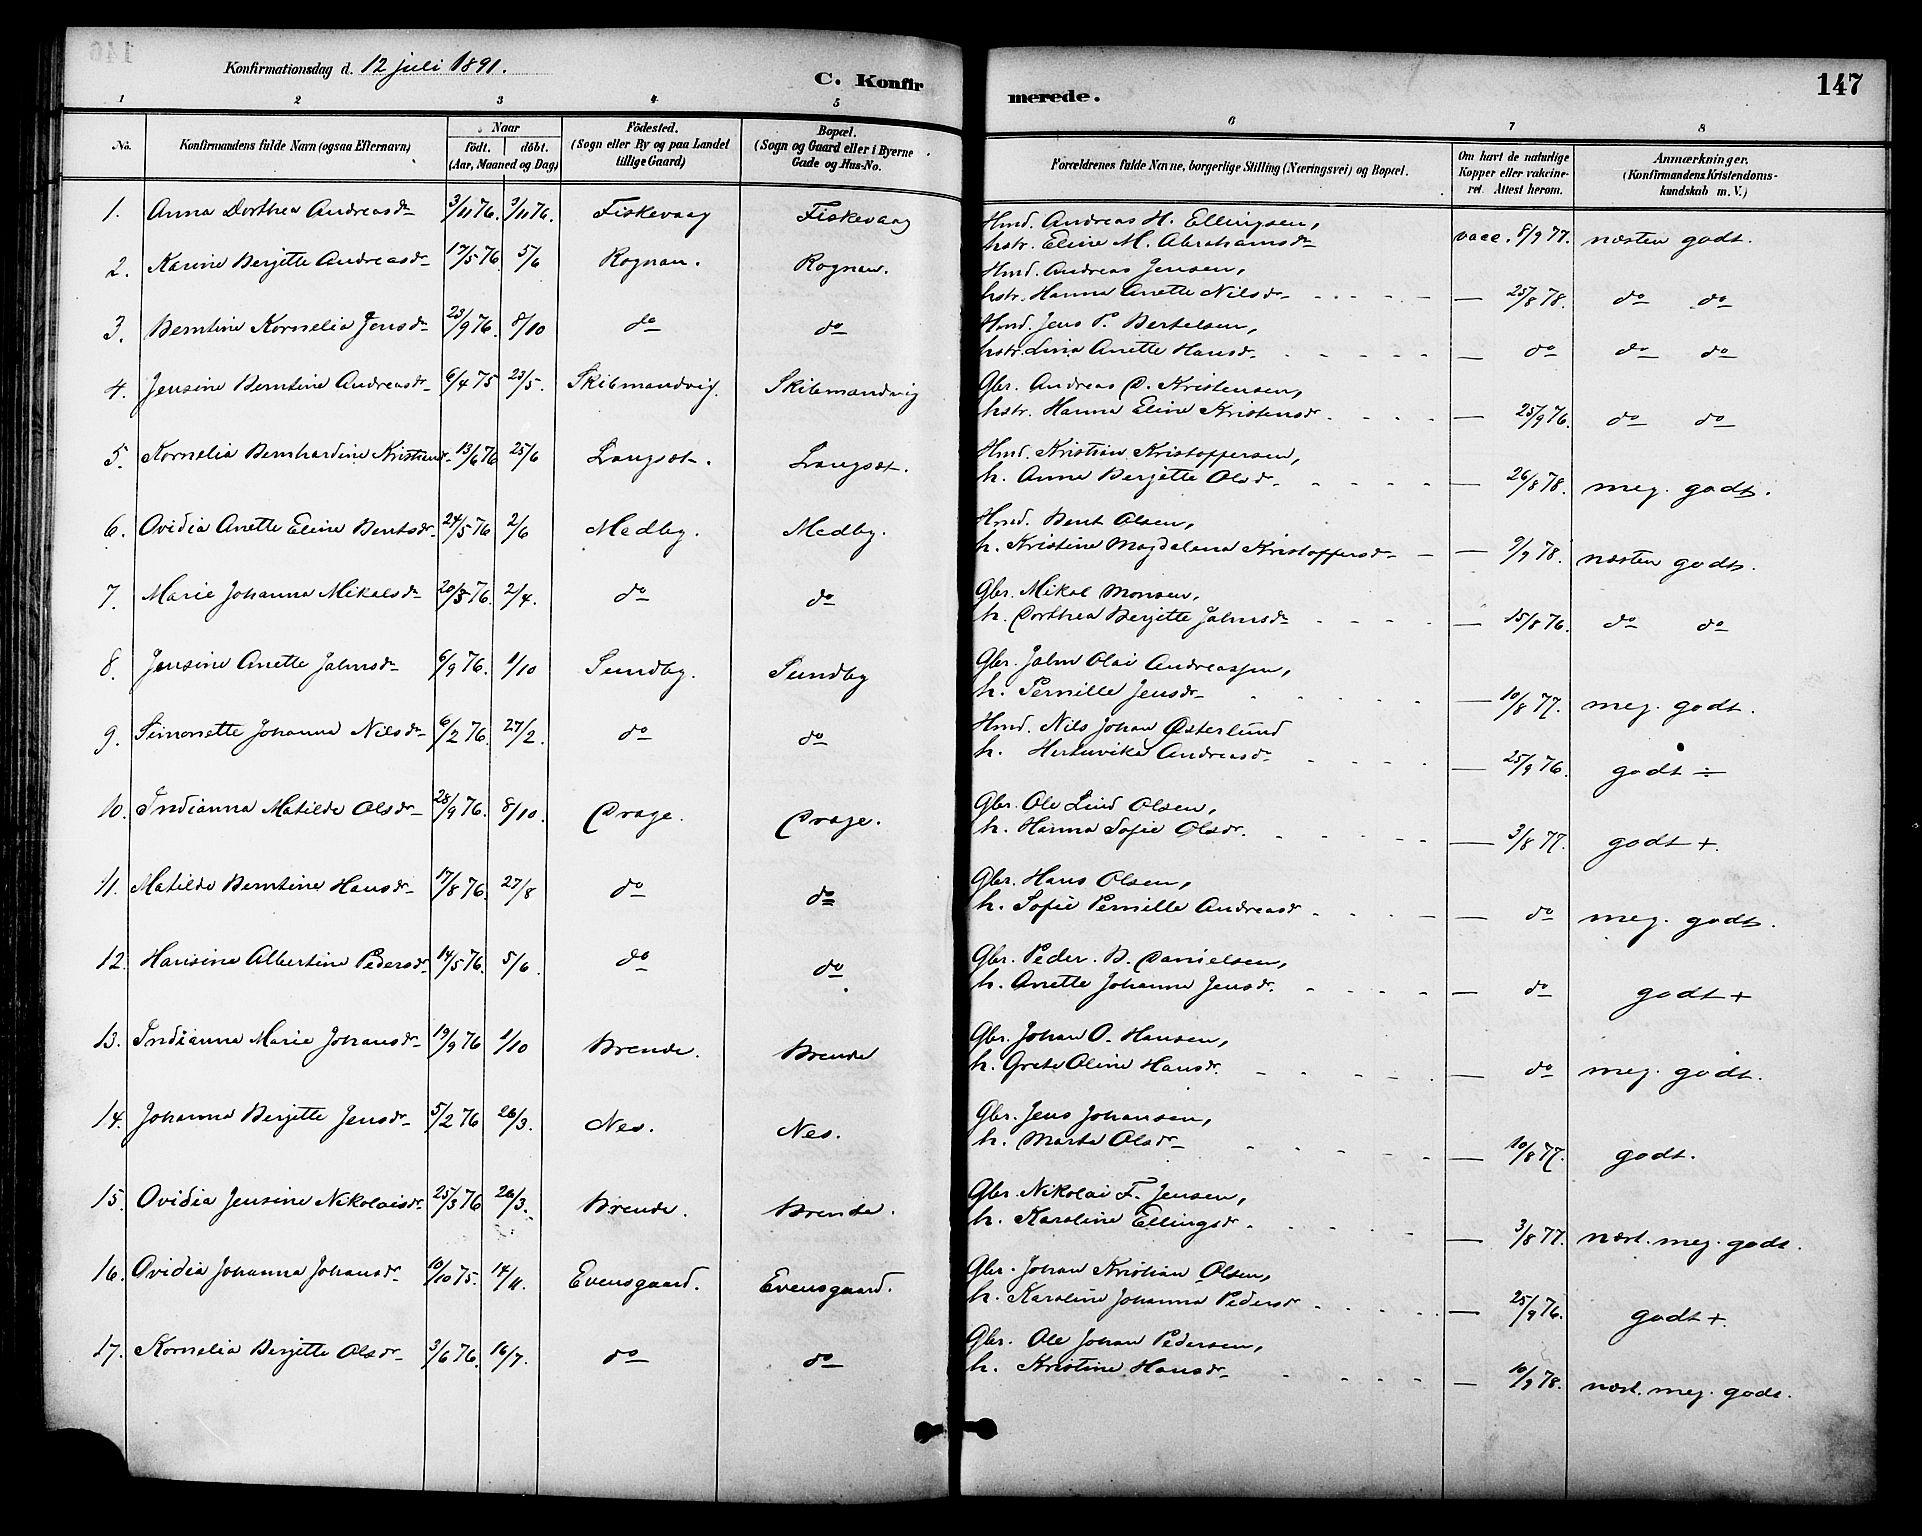 Konfirmationsdag d. 12 juli 1891.
C. Konfirmerede.
147
1 2 3 4 5 6 7 8
No.
Konfirmandens fulde Navn (ogsaa Efternavn)
Naar
födt. döbt.
(Aar, Maaned og Dag)
Födested.
(Sogn eller By og paa Landet
tillige Gaard)
Bopæl.
(Sogn og Gaard eller i Byerne
Gade og Hus-No.
Forældrenes fulde Navne, borgerlige Stilling (Næringsvei) og Bopæl.
Om havt de naturlige
Kopper eller vakcine-
ret. Attest herom.
Anmærkninger.
(Konfirmandens Kristendoms-
kundskab m. V.)
1. Anna Dorthea Andreasdr 3/11 76. 9/11 76. Fiskevaag Fiskevaag
Hmd. Andreas H. Ellingsen,
hstr. Eline M. Abrahamsdr vacc. 8/9 77. næsten godt.
2. Karine Berjitte Andreasdr 17/5 76. 5/6 Rognan. Rognan.
Hmd. Andreas Jensen,
hstr. Hanna Anette Nilsdr — 25/8 78. do do
3. Berntine Kornelia Jensdr 23/9 76. 8/10 do do
Hmd. Jens P. Bertelsen,
hstr. Lina Anette Hansdr. — do do do
4. Jensine Berntine Andreasdr 6/4 75 23/5. Skibmandvig. Skibmandvig
Gbr. Andreas C. Kristensen,
hstr. Hanna Eline Kristensdr — 25/9 76. do do
5. Kornelia Bernhardine Kristiansdr 13/6 76 25/6 Langsæt. Langsæt.
Hmd. Kristian Kristoffersen,
h. Anne Berjitte Olsdr. — 26/8 78. meg. godt.
6. Ovidia Anette Eline Bentsdr 24/5 76 2/6 Medby. Medby.
Hmd. Bent Olsen,
h. Kristine Magdalena Kristoffersdr — 9/9 78. næsten godt.
7. Marie Johanna Mikalsdr 20/3 76. 2/4. do do
Gbr. Mikal Monsen,
h. Dorthea Berjitte Jalmsdr — 15/8 76. do do
8. Jensine Anette Jalmsdr 6/9 76. 1/10 Sundby. Sundby
Gbr. Jalm Olai Andreassen,
h. Pernille Jensdr — 10/8 77. meg. godt.
9. Simonette Johanna Nilsdr 6/2 76. 27/2. do do
Hmd. Nils Johan Østerlund
h. Andreasdr — 25/9 76. godt ÷
10. Indianna Matilde Olsdr 28/9 76. 8/10. Drage. Drage.
Gbr. Ole Lind Olsen,
h. Hanna Sofie Olsdr. — 3/8 77. godt +.
11. Matilde Berntine Hansdr 17/8 76. 27/8 do do
Gbr. Hans Olsen,
h. Sofie Pernille Andreasdr — do meg. godt.
12. Hansine Albertine Pedersdr 14/5 76. 5/6. do do
Gbr. Peder. B. Danielsen,
h. Anette Johanna Jensdr. — do godt +
13. Indianna Marie Johansdr 19/9 76 1/10 Brende. Brende
Gbr. Johan O. Hansen,
h. Grete Oline Hansdr. — do meg. godt.
14. Johanna Berjitte Jensdr 5/2 76 26/3. Nes. Nes.
Gbr. Jens Johansen,
h. Marta Olsdr — 10/8 77. godt.
15. Ovidia Jensine Nikolaisdr 25/3 76 26/3. Brende. Brende.
Gbr. Nikolai F. Jensen,
h. Karoline Ellingsdr. — 3/8 77. næst. meg. godt.
16. Ovidia Johanna Johansdr 10/10 75. 14/11. Evensgaard. Evensgaard.
Gbr. Johan Kristian Olsen,
h. Karoline Johanna Pedersdr — 25/9 76. godt +
17. Kornelia Berjitte Olsdr 3/6 76. 16/7. do do
Gbr. Ole Johan Pedersen,
h. Kristine Hansdr — 10/9 78. næst. meg. godt.